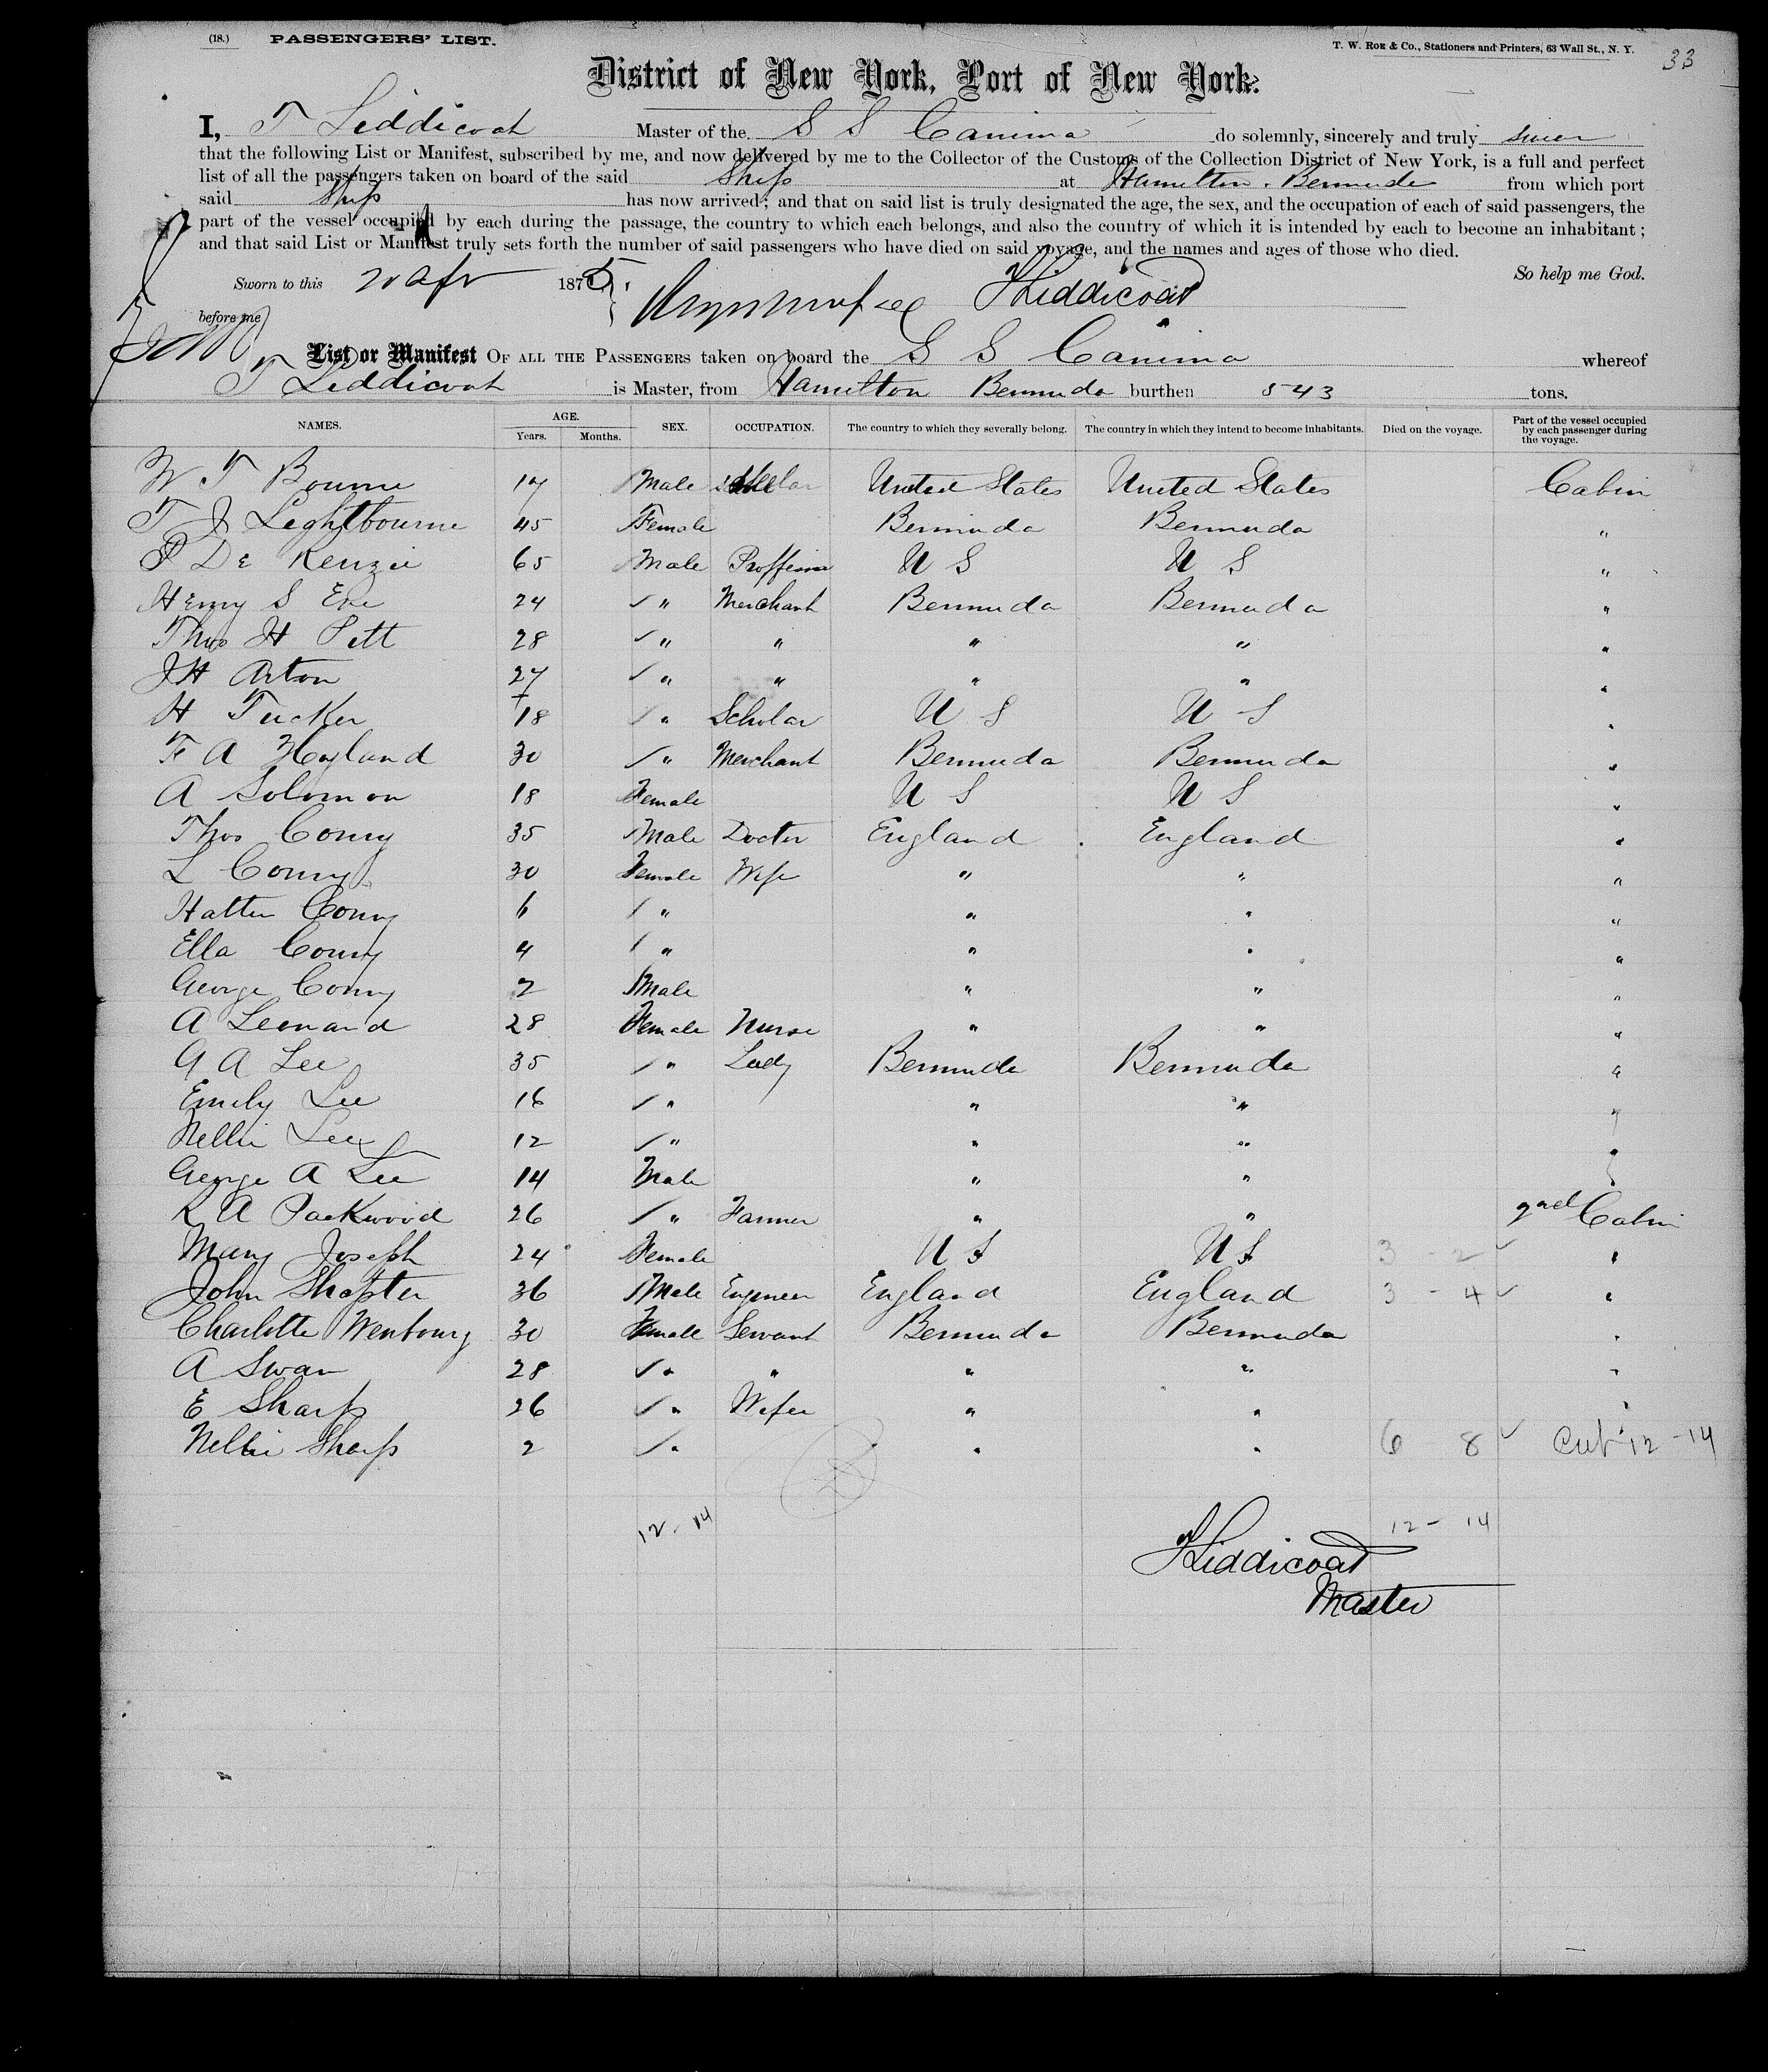 (18.) PASSENGERS' LIST. T. W. ROE & Co., Stationers and Printers, 63 Wall St., N. Y. 33
District of New York, Port of New York:
I, T Liddicoat Master of the S S Canima do solemnly, sincerely and truly swear
that the following List or Manifest, subscribed by me, and now delivered by me to the Collector of the Customs of the Collection District of New York, is a full and perfect
list of all the passengers taken on board of the said Ship at Hamilton. Bermuda from which port
said Ship has now arrived; and that on said list is truly designated the age, the sex, and the occupation of each of said passengers, the
part of the vessel occupied by each during the passage, the country to which each belongs, and also the country of which it is intended by each to become an inhabitant;
and that said List or Manifest truly sets forth the number of said passengers who have died on said voyage, and the names and ages of those who died.
So help me God.
Sworn to this Apr 1875 TLiddicoat
before me
List or Manifest OF ALL THE PASSENGERS taken on board the S S Canima whereof
T Liddicoat is Master, from Hamilton Bermuda burthen 543 tons.
NAMES. AGE. Years. Months. SEX. OCCUPATION. The country to which they severally belong. The country in which they intend to become inhabitants. Died on the voyage. Part of the vessel occupied by each passenger during the voyage.
W T Bourne 17 Male United States United States Cabin
T J Leghtbourne 45 Female Bermuda Bermuda "
P De Kenzie 65 Male U S U S "
Henry S Eve 24 " Merchant Bermuda Bermuda "
Thos H Pitt 28 " " " " "
JH Arton 27 " " " " "
H Tucker 18 " Scholar U S U S "
F A Hayland 30 " Merchant Bermuda Bermuda "
A Solomon 18 Female U S U S "
Thos Conry 35 Male Doctor England England "
L Conry 30 Female Wife " " "
Hatten Conry 6 " " " "
Ella Conry 4 " " " "
George Conry 2 Male " " "
A Leonard 28 Female Nurse " " "
G A Lee 35 " Lady Bermuda Bermuda "
Emily Lee 16 " " " "
Nellie Lee 12 " " " "
George A Lee 14 Male " " "
R A Packwood 26 " Farmer " " 2nd Cabin
Mary Joseph 24 Female U S U S 3 - 2 "
John Shapter 36 Male Engineer England England 3 - 4 "
Charlotte Wenbourg 30 Female Servant Bermuda Bermuda "
A Swan 28 " " " " "
E Sharp 26 " Wifee " " "
Nellie Sharp 2 " " " 6 8 Cub 12 - 14
12 - 14 12 - 14
TLiddicoat
Master